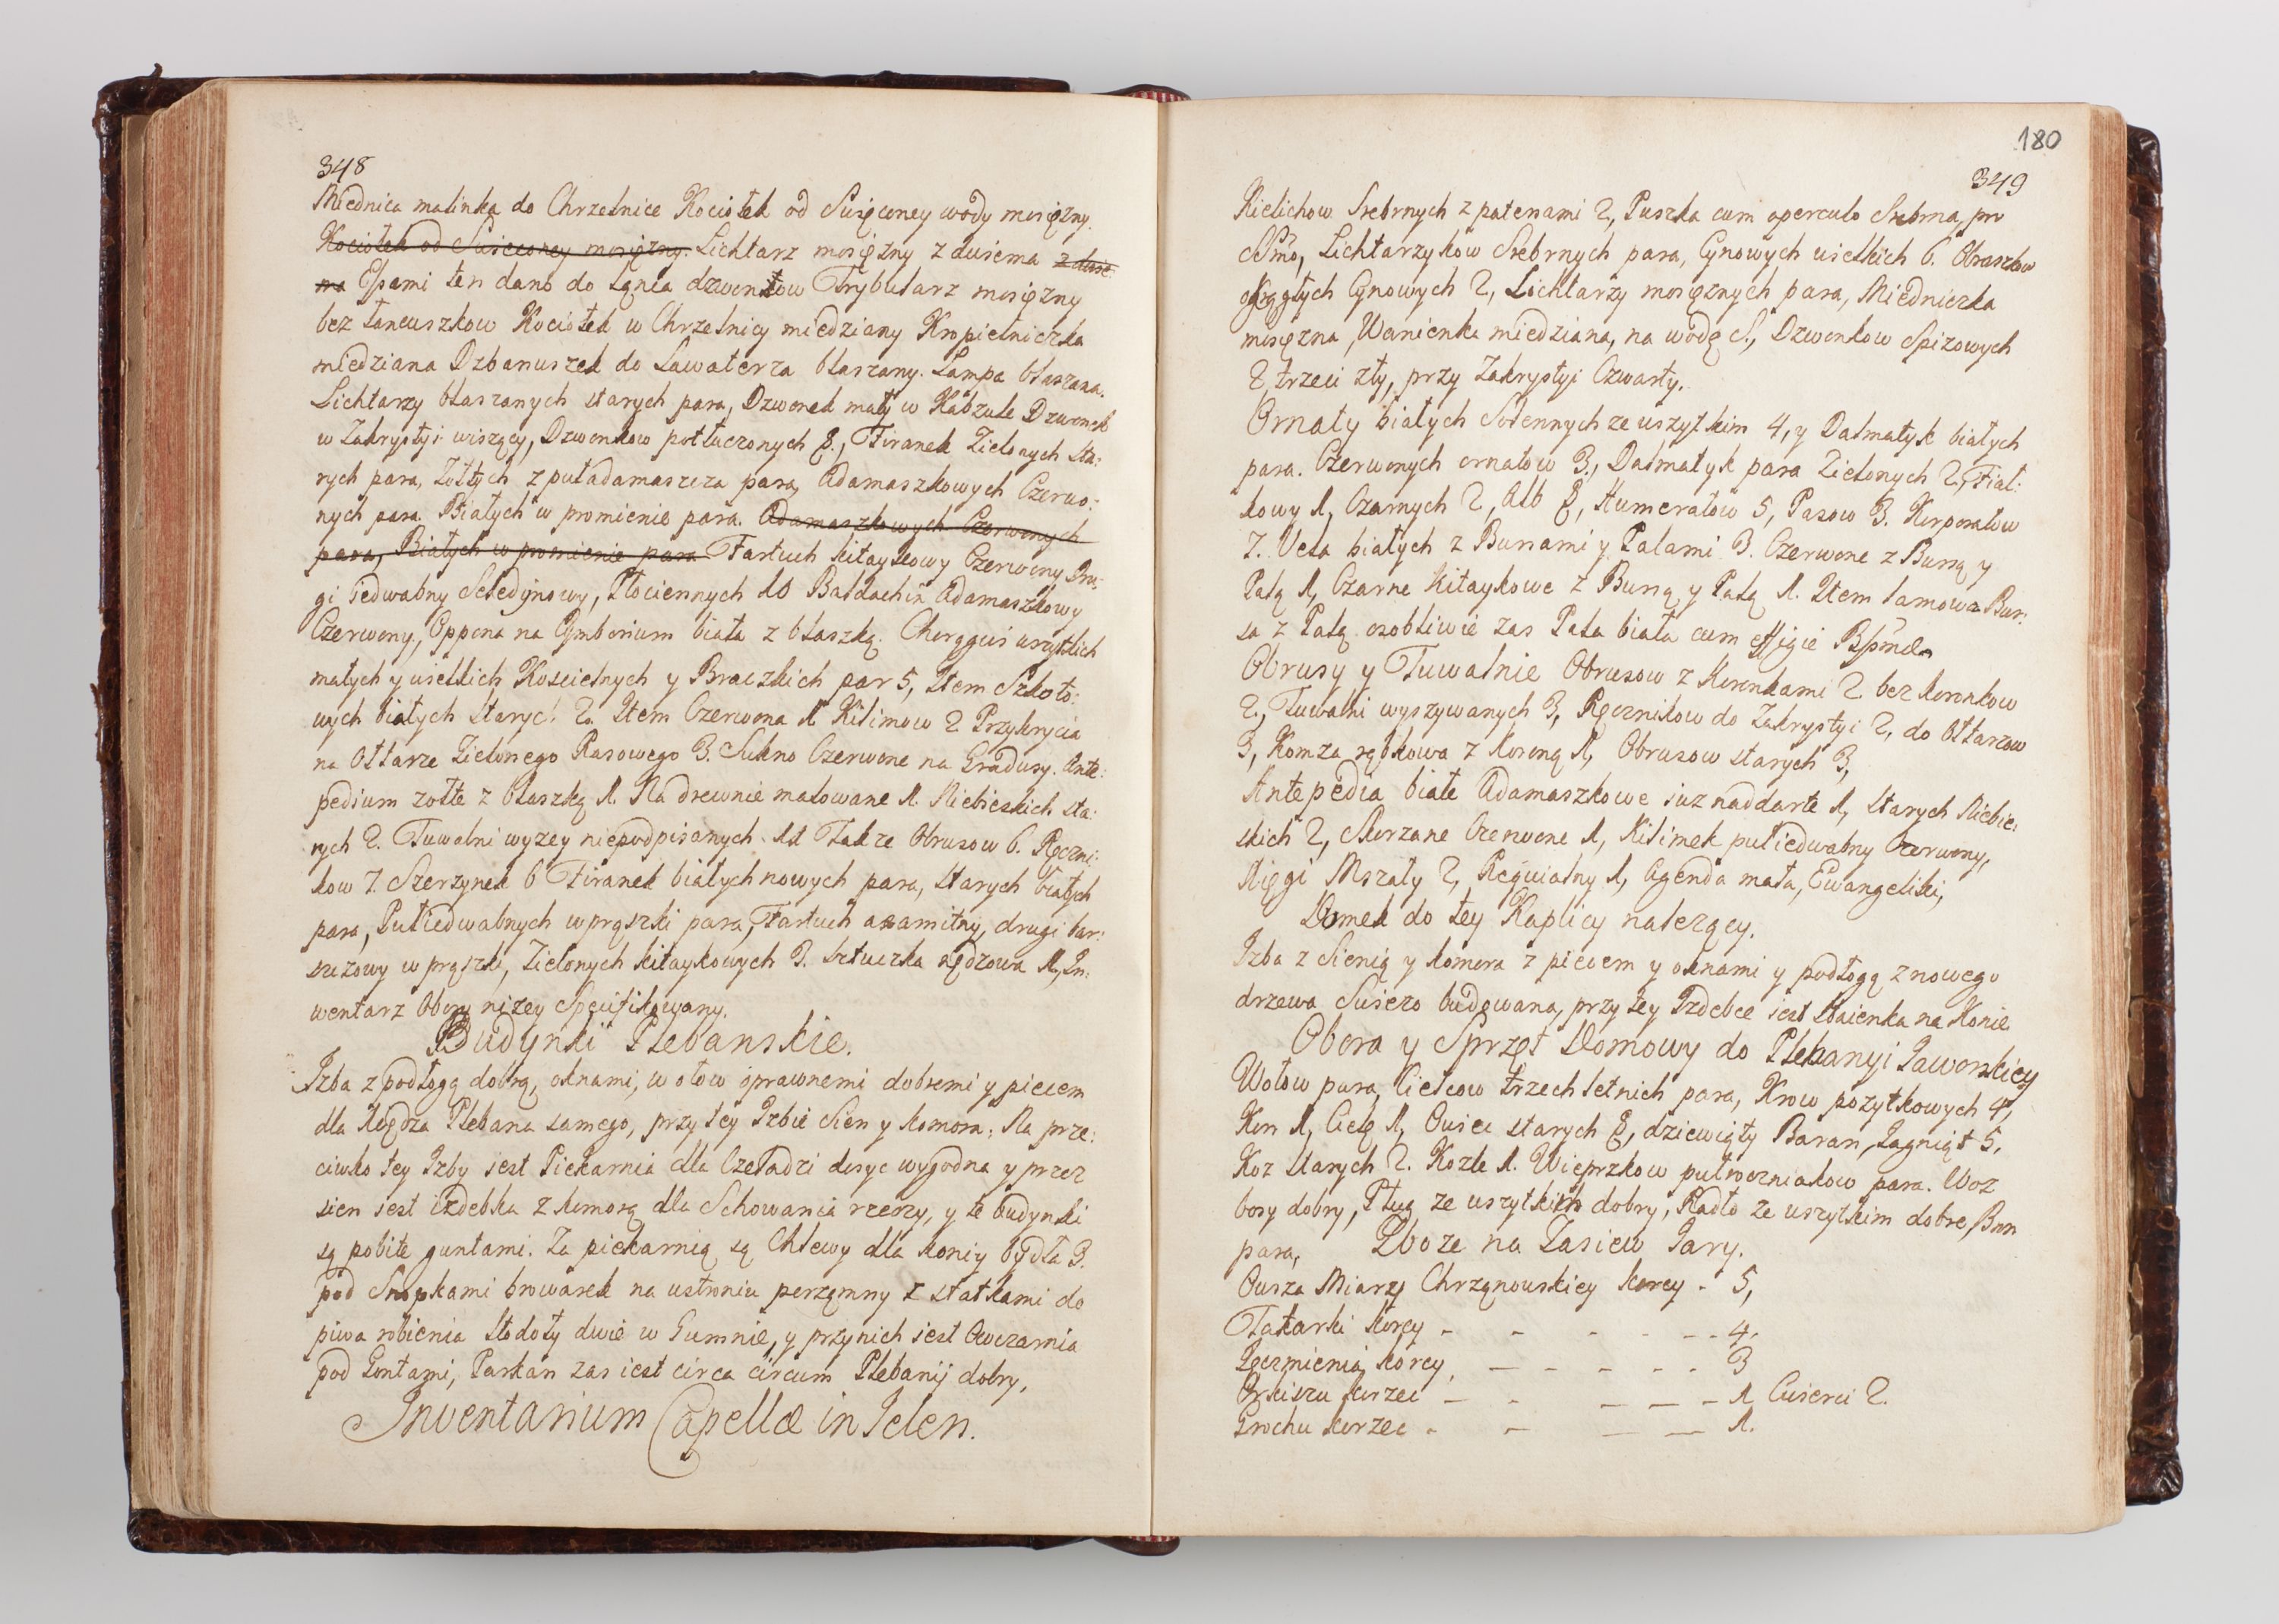 348
Miednica malinka do Chrzelnice Kociołek od Swięconey wody mosięzny.
Kociołek od Swieconey mosięzny. Lichtarz mosięzny z dwiema z dwie
ma Psami ten dano do Lania dzwonkow Trybularz mosięzny
bez łancuszkow Kociołek w Chrzelnicy miedziany Kropielniczka
miedziana Dzbanuszek do Lawaterza blaszany. Lampa blaszana.
Lichtarzy blaszanych starych para, Dzwonek mały w Kabzule Dzwonek
w Zakrystyi wiszący, Dzwonkow potłuczonych 8., Firanek Zielonych sta:
rych para, Zołtych z puładamaszcza para, Adamaszkowych Czerwo:
nych para. Białych w promienie para. Adamaszkowych Czerwonych
para, Białych w promienie para Fartuch kitaykowy Czerwony Dru:
gi Jedwabny Seledynowy, Płociennych 10 Baldachin Adamaszkowy
Czerwony, Oppona na Cymborium biała z blaszką. Chorągwi wszytkich
małych y wielkich Koscielnych y Brackich par 5, Item Szkoło:
wych białych starych 2. Item Czerwona 1 Kilimow 2 Przykrycia
na Ołtarze Zielonego Rasowego 3. Sukno Czerwone na Gradusy. Ante:
pedium zołte z blaszką 1. Na drewnie malowane 1. Niebieskich sta:
rych 2. Tuwalni wyzey niepodpisanych 11 Takze Obrusow 6. Ręczni:
kow 7. Szerzynek 6 Firanek białych nowych para, starych białych
para, Puljedwabnych w prązki para, Fartuch axamitny, drugi tar:
szczowy w prązki, Zielonych kitaykowych 3. sztuczka rądzowa 1, In:
wentarz Obory nizey Specifikowany.
Budynki Plebanskie.
Izba z podłogą dobrą, oknami, w ołow oprawnemi dobremi y piecem
dla Xiędza Plebana samego, przy tey Izbie Sien y komora, Na prze:
ciwko tey Izby jest Piekarnia dla Czeladzi dosyc wygodna y przez
sien jest izdebka z komorą dla Schowania rzeczy, y te budynki
są pobite guntami. Za piekarnią są Chlewy dla koni y bydła 3.
pod Snopkami browarek na ustroniu porządny z statkami do
piwa robienia Stodoły dwie w Gumnie, y przy nich jest Owczarnia
pod Gontami, Parkan zas iest circa circum Plebanij dobry,
Inventarium Capellæ in Jelen.
180
349
Kielichow Srebrnych z patenami 2, Puszka cum operculo Srebrna, pro
SSmo, Lichtarzykow Srebrnych para, Cynowych wielkich 6. Obraszkow
okrągłych Cynowych 2, Lichtarzy mosięznych para, Miedniczka
mosięzna, Wanienka miedziana, na wodę S., Dzwonkow Spizowych
2 trzeci zły, przy Zakrystyi Czwarty.
Ornaty białych Solennych ze wszytkim 4, y Dalmatyk białych
para. Czerwonych ornatow 3., Dalmatyk para Zielonych 2, Fiał:
kowy 1, Czarnych 2, Alb 8, Humerałow 5, Pasow 3. Korporałow
7. Vela białych z Bursami y Palami 3. Czerwone z Bursą y
Palą 1, Czarne kitaykowe z Bursą y Palą 1. Item lamowa Bur:
sa z Palą osobliwie zas Pala biała cum effigie BSSmæ
Obrusy y Tuwalnie Obrusow z Koronkami 2 bez koronkow
2., Tuwalni wyszywanych 3, Ręcznikow do Zakrystyi 2, do Ołtarzow
3, Komza rąbkowa z koroną 1, Obrusow starych 3,
Antepedia białe Adamaszkowe juz naddarte 1, starych Niebie:
skich 2, Skorzane Czerwone 1, Kilimek puljedwabny Czerwony,
Xięgi Mszały 2, Reqwialny 1, Agenda mała, Ewangeliki,
Domek do tey Kaplicy nalezący.
Izba z Sienią y komora z piecem y oknami y podłogą z nowego
drzewa Swiezo budowana, przy tey Izdebce jest Staienka na Konie
Obora y Sprzęt Domowy do Plebanyi Jaworskiey
Wołow para, Cielcow trzech letnich para, Krow pozytkowych 4,
Kon 1, Cielę 1, Owiec starych 8, dziewiąty Baran, Jagniąt 5,
Koz starych 2. Kozle 1. Wieprzkow pułroczniakow para. Woz
bosy dobry, Pług ze wszytkim dobry, Radło ze wszytkim dobre, Bron
para, Zboze na Zasiew Jary.
Owsa Miary Chrząnowskiey korcy - 5,
Tatarki korcy - - - - - - 4.
Jęczmienia korcy, - - - - - 3
Orkiszu korzec - - - - - 1 Cwierci 2.
Grochu korzec - - - - 1.